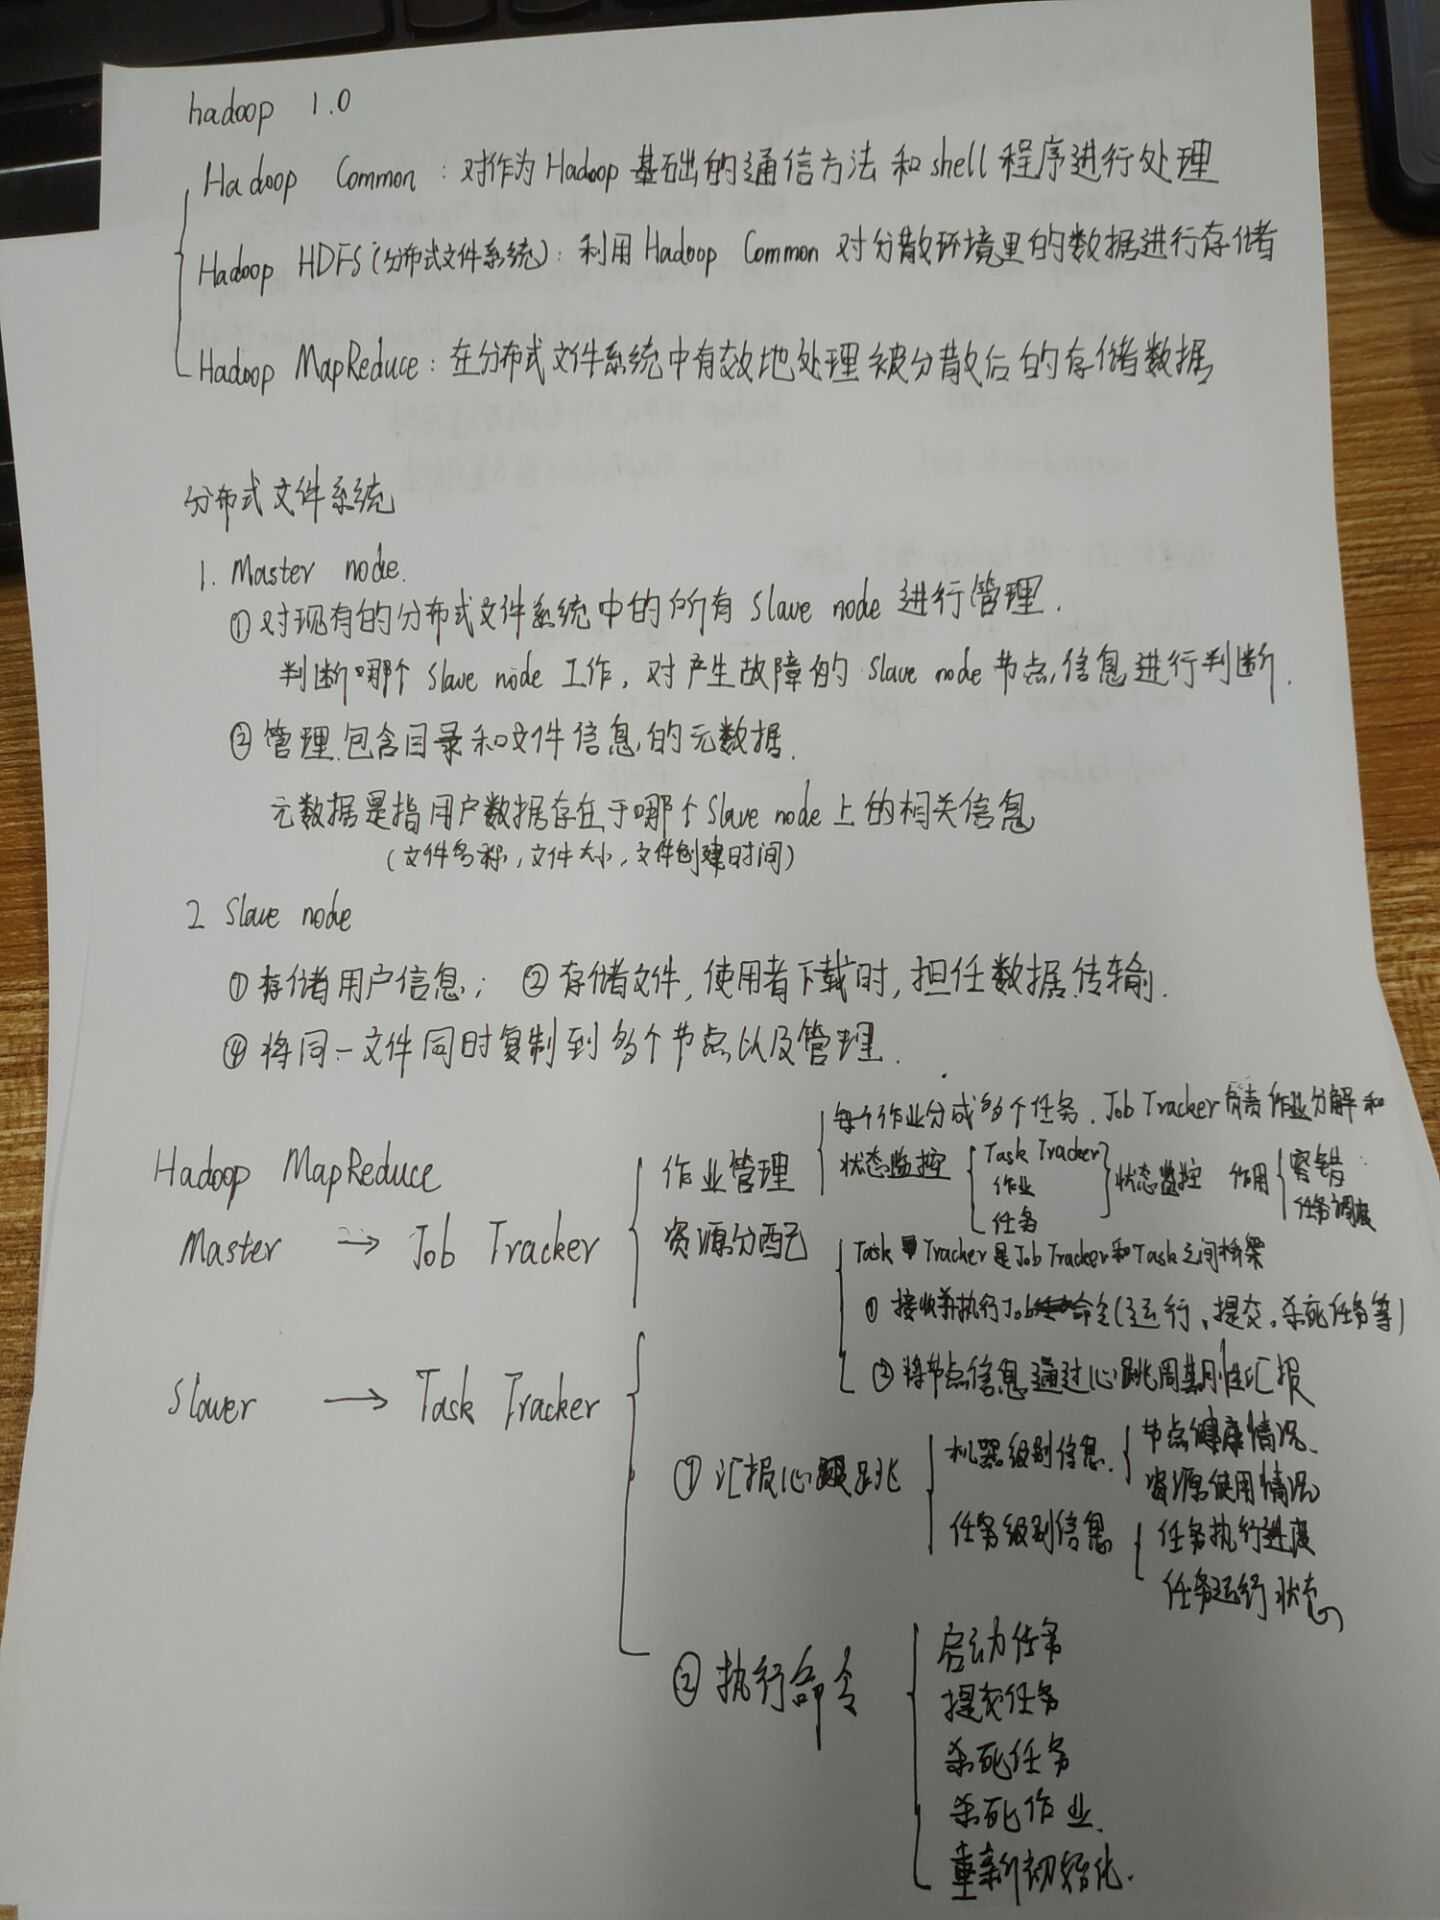 hadoop 1.0
Hadoop Common：对作为Hadoop基础的通信方法和shell程序进行处理
Hadoop HDFS(分布式文件系统)：利用Hadoop Common对分散环境里的数据进行存储
Hadoop MapReduce：在分布式文件系统中有效地处理被分散后的存储数据
分布式文件系统
1. Master node.
①对现有的分布式文件系统中的所有Slave node进行管理.
判断哪个Slave node工作，对产生故障的Slave node节点信息进行判断.
②管理包含目录和文件信息的元数据.
元数据是指用户数据存在于哪个Slave node上的相关信息
(文件名称，文件大小，文件创建时间)
2 Slave node
①存储用户信息； ②存储文件，使用者下载时，担任数据传输.
④将同一文件同时复制到多个节点以及管理.
Hadoop MapReduce
Master → Job Tracker
作业管理
每个作业分成多个任务.Job Tracker负责作业分解和
状态监控
Task Tracker
作业
任务
状态监控 作用
容错
任务调度
资源分配
Task Tracker是Job Tracker和Task之间桥梁
①接收并执行Job命令(运行、提交、杀死任务等)
②将节点信息通过心跳周期性汇报
Slower → Task Tracker
①汇报心跳
机器级别信息.
节点健康情况.
资源使用情况
任务级别信息
任务执行进度
任务运行状态
②执行命令
启动任务
提交任务
杀死任务
杀死作业.
重新初始化.